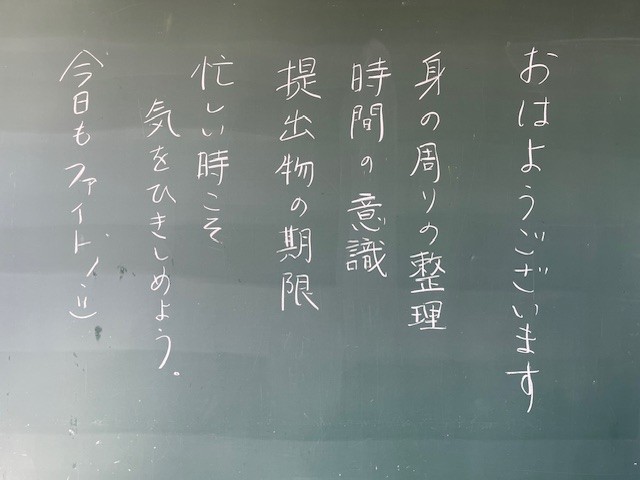 おはようございます
身の周りの整理
時間の意識
提出物の期限
忙しい時こそ
気をひきしめよう。
今日もファイト!:)